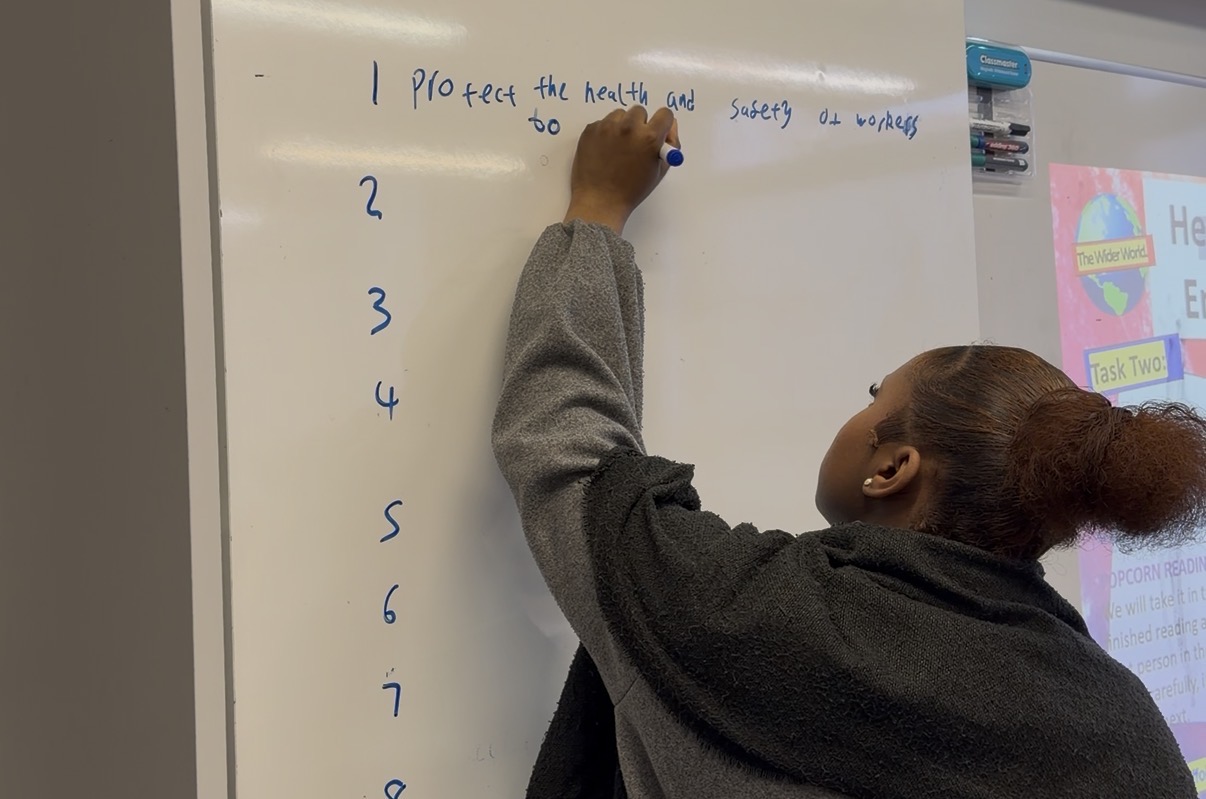 1 protect the health and safety of workers
to
2
3
4
5
6
7
8
Classmaster
The Wider World
He
Er
Task Two:
OPCORN READIN
We will take it in t
inished reading a
person in th
carefully, i
ext.